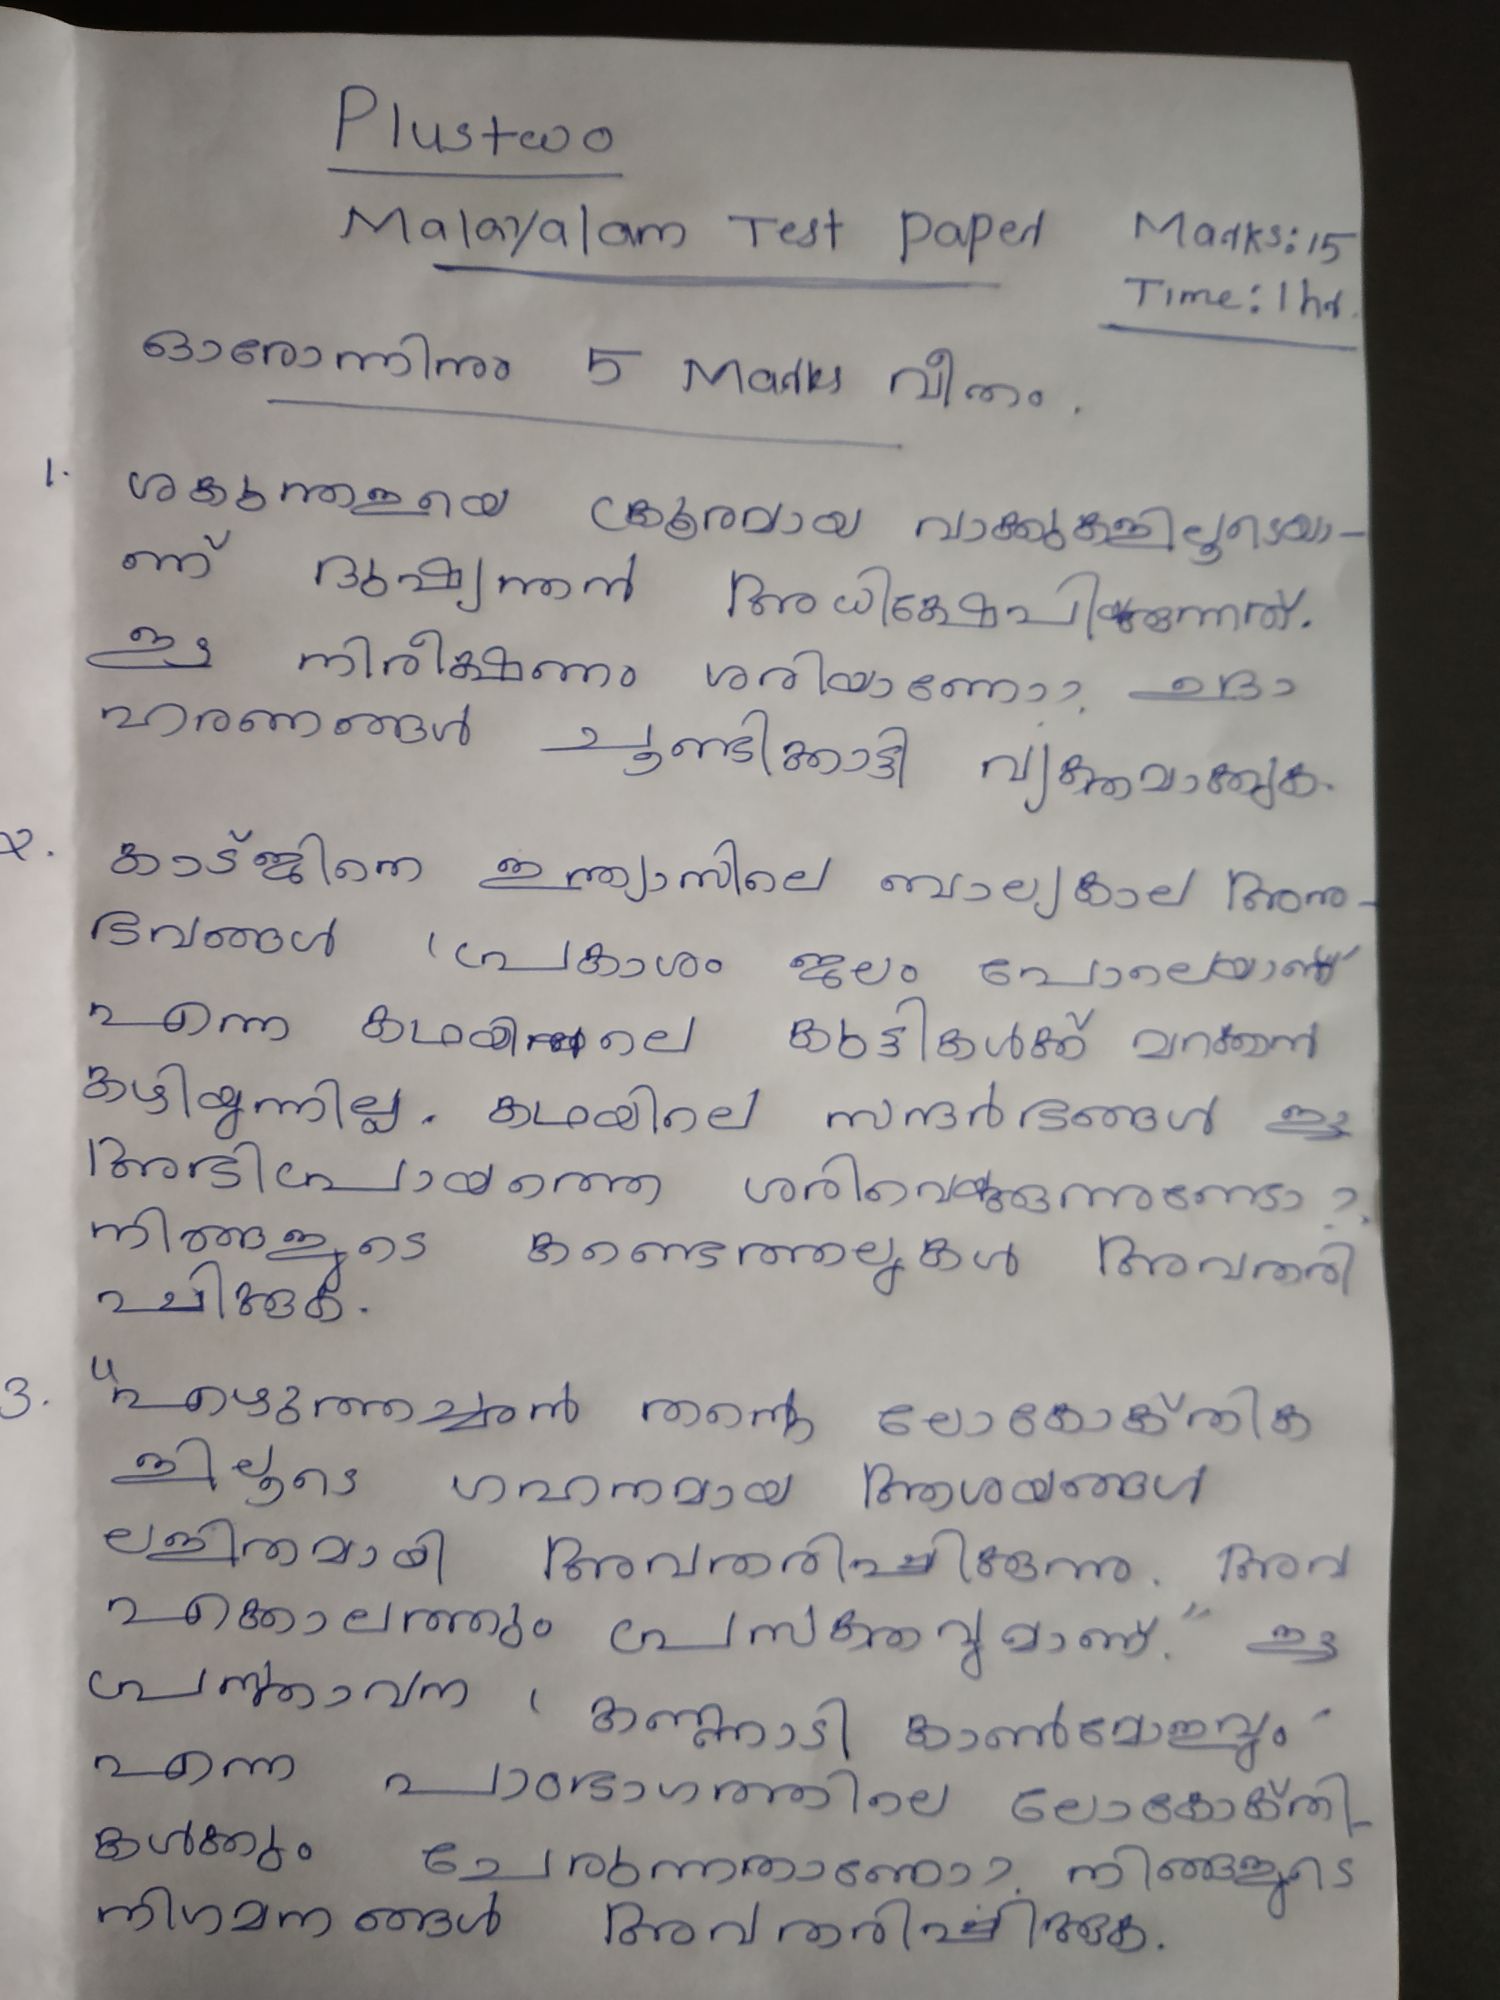 Plustwo
Malayalam Test paper Marks: 15
Time: 1 hr.
ഓരോന്നിനും 5 Marks വീതം.
1. ശകുന്തളയെ ക്രൂരമായ വാക്കുകളിലൂടെയാ-
ണ് ദുഷ്യന്തൻ അധിക്ഷേപിക്കുന്നത്.
ഈ നിരീക്ഷണം ശരിയാണോ? ഉദാ
ഹരണങ്ങൾ ചൂണ്ടിക്കാട്ടി വ്യക്തമാക്കുക.
2. കാട്ജിനെ ഇന്ത്യാസിലെ ബാല്യകാല അനു-
ഭവങ്ങൾ 'പ്രകാശം ജലം പോലെയാണ്'
എന്ന കഥയിലെ കുട്ടികൾക്ക് മറക്കാൻ
കഴിയുന്നില്ല. കഥയിലെ സന്ദർഭങ്ങൾ ഈ
അഭിപ്രായത്തെ ശരിവെയ്ക്കുന്നുണ്ടോ?
നിങ്ങളുടെ കണ്ടെത്തലുകൾ അവതരി
പ്പിക്കുക.
3. "എഴുത്തച്ഛൻ തന്റെ ലോകോക്തിക
ളിലൂടെ ഗഹനമായ ആശയങ്ങൾ
ലളിതമായി അവതരിപ്പിക്കുന്നു. അവ
എക്കാലത്തും പ്രസക്തവുമാണ്." ഈ
പ്രസ്താവന 'കണ്ണാടി കാൺമോളവും'
എന്ന പാഠഭാഗത്തിലെ ലോകോക്തി-
കൾക്കും ചേരുന്നതാണോ? നിങ്ങളുടെ
നിഗമനങ്ങൾ അവതരിപ്പിക്കുക.